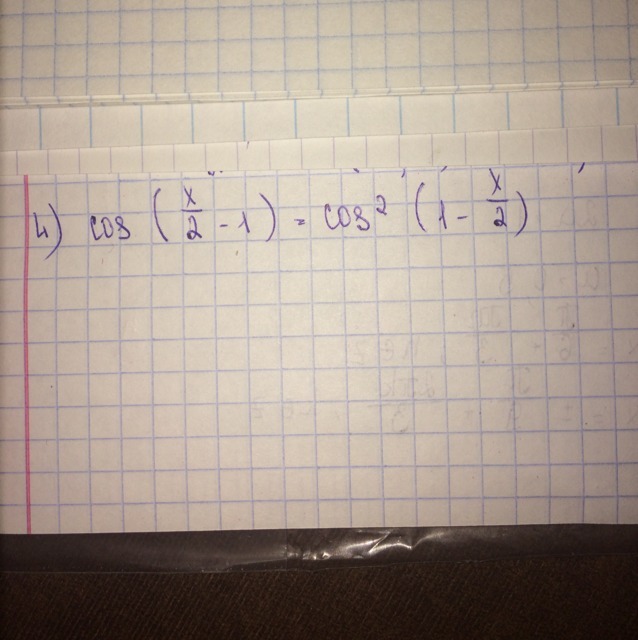 4) cos (x/2 - 1) = cos² (1 - x/2)